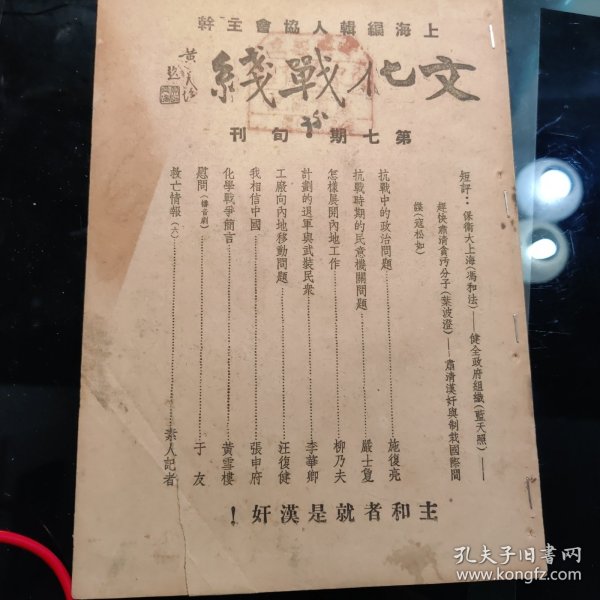 上海編輯人協會主幹
文化戰綫
黃炎培題
第七期 旬刊
短評：保衛大上海(馮和法)——健全政府組織(藍天照)——
趕快肅清貪污分子(葉波澄)——肅清漢奸與制裁國際間
諜(寇松如)
抗戰中的政治問題…………施復亮
抗戰時期的民意機關問題…………嚴士复
怎樣展開內地工作…………柳乃夫
計劃的退軍與武裝民衆…………李華卿
工廠向內地移動問題…………汪復健
我相信中國…………張申府
化學戰爭簡言…………黃雪樓
慰問(播音劇)…………于友
救亡情報(六)…………素人記者
主和者就是漢奸！
孔夫子旧书网
www.kongfz.com